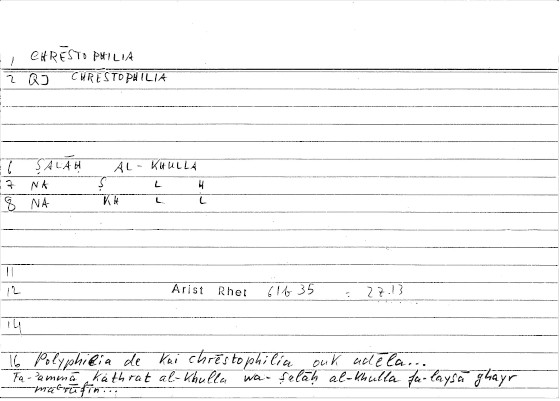 1 CHRĒSTOPHILIA
2 Q] CHRĒSTOPHILIA
6 ṢALĀḤ AL-KHULLA
7 NA Ṣ L Ḥ
8 NA KH L L
11
12 Arist Rhet 61b 35 = 27.13
14
16 Polyphilia de kai chrēstophilia ouk adēla...
Fa-ʾammā kathrat al-khulla wa-ṣalāḥ al-khulla fa-laysā ghayr
maʿrūfīn...